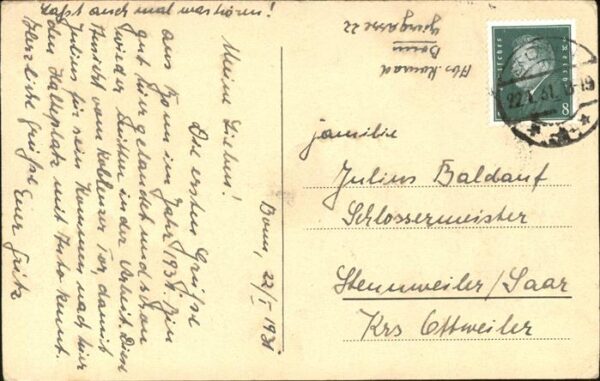 Bonn, 22/I 1931
Meine Lieben!
Die ersten Grüße
aus Bonn im Jahr 1931. Bin
gut hier gelandet und schon
wieder in der Arbeit. Diese
Ansicht vom Koblenzer Tor, damit
Julius für sein Kommen nach hier
den Halteplatz mit Auto kennt.
Herzliche Grüße Euer Fritz
Laßt auch mal was hören!
Abs. Konrad
Bonn
22
DEUTSCHES REICH
8
22.1.31.
Familie
Julius Baldauf
Schlossermeister
Stennweiler/Saar
Krs Ottweiler